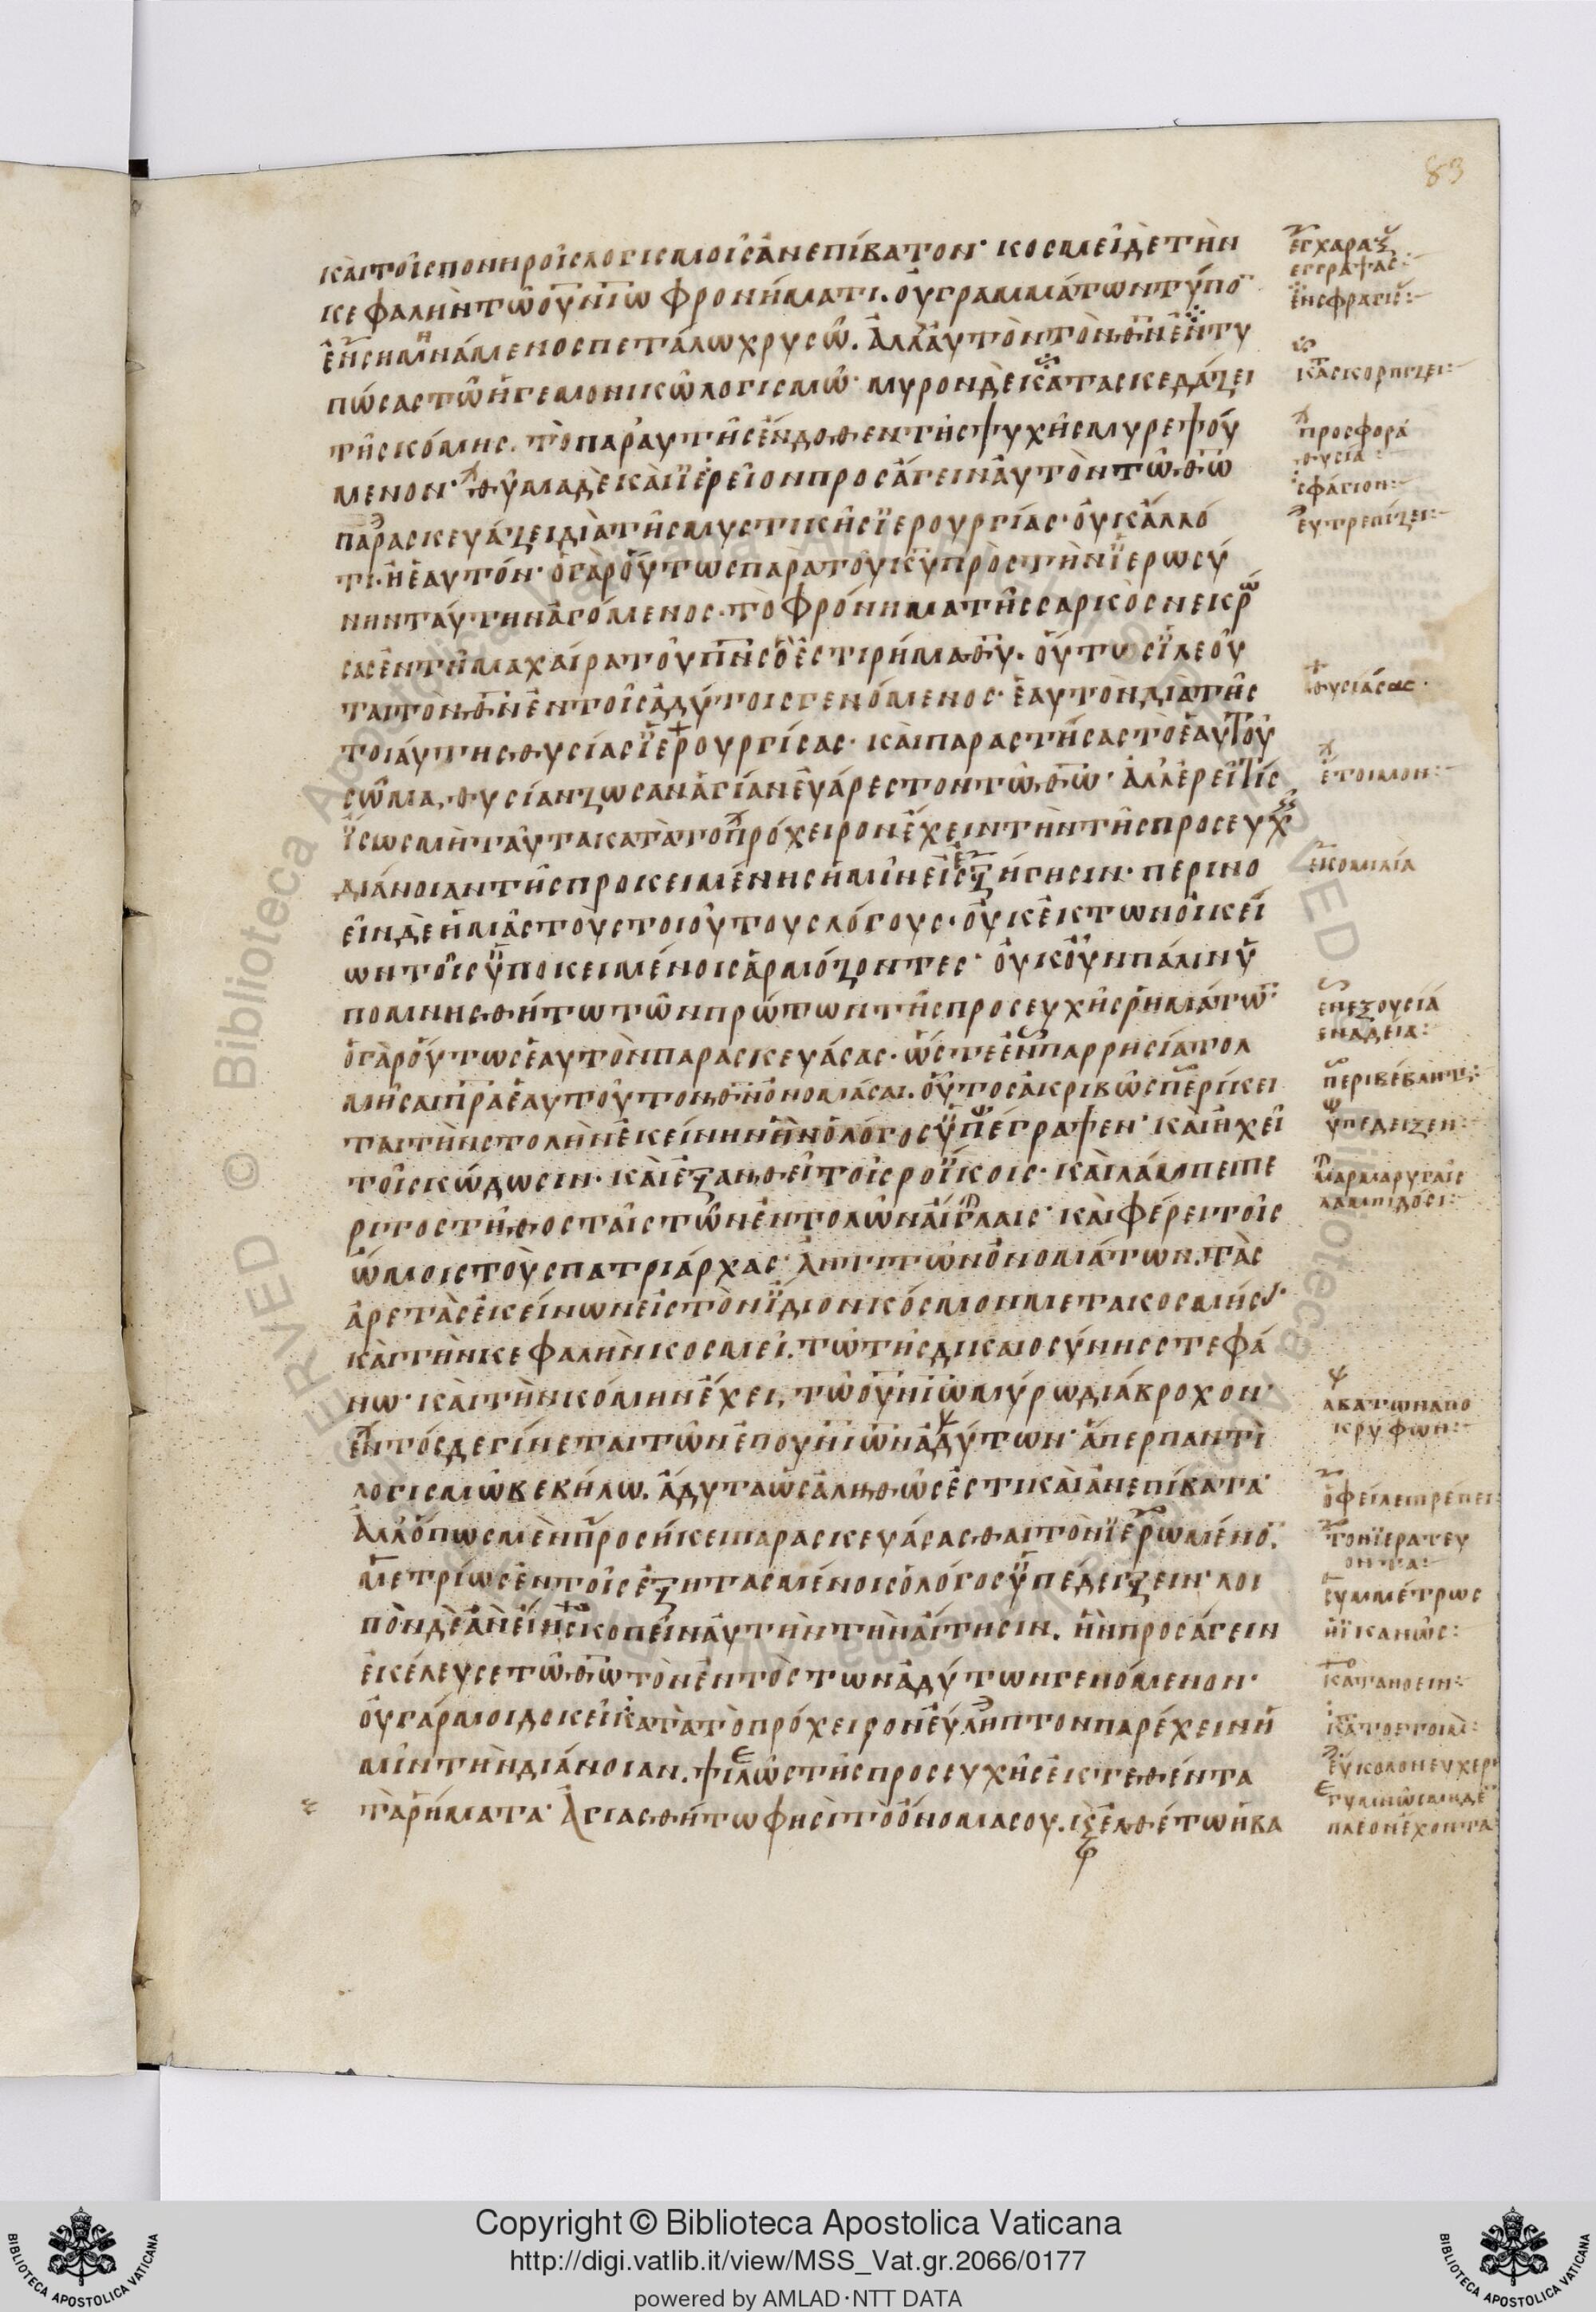 83
καὶ τοῖς πονηροῖς λογισμοῖς ἀνεπίβατον· κοσμεῖ δὲ τὴν
κεφαλὴν τῶ οὐνίω φρονήματι. οὐ γραμμάτων τύπον
ἐνσημηνάμενος πετάλω χρυσῶ. ἀλλ' αὐτὸν τὸν θν ἐντυ
πώσας τῶ ἡγεμονικῶ λογισμῶ· μυρον δὲ κατασκεδάζει
τῆς κόμης. τὸ παρ' αὐτῆς ἔνδοθεν τῆς ψυχῆς μυρεψού
μενον· θῦμα δὲ καὶ ἱερεῖον προσάγειν αὐτὸν τῶ θω
παρασκευάζει διὰ τῆς μυστικῆς ἱερουργίας· οὐκ ἄλλό
τι· ἢ ἑαυτόν· ὁ γὰρ οὕτως παρὰ τοῦ κυ πρὸς τὴν ἱερωσύ
νην ταύτην ἀγόμενος· τὸ φρόνημα τῆς σαρκὸς νεκρώ
σας ἐν τῆ μαχαίρα τοῦ πνς ὅ ἐστι ρῆμα θυ. οὕτως ἱλεοῦ
ται τὸν θν ἐν τοῖς ἀδύτοις γενόμενος· ἑαυτὸν διὰ τῆς
τοιαύτης θυσίας ἱερουργίσας· καὶ παραστήσας τὸ ἑαυτοῦ
σῶμα, θυσίαν ζωσαν ἁγίαν εὐάρεστον τῶ θω· ἀλλ' ἐρεῖ τίς
ἴσως μὴ ταῦτα κατὰ τὸ πρόχειρον ἔχειν τὴν τῆς προσευχῆς
διάνοιαν τῆς προκειμένης ἡμῖν εἰς ἐξήγησιν· περινο
εῖν δὲ ἡμᾶς τοὺς τοιούτους λόγους· οὐκ ἐκ τῶν οἰκεί
ων τοῖς ὑποκειμένοις ἁρμόζοντες· οὐκοῦν πάλιν ὑ
πομνησθήτω τῶν πρώτων τῆς προσευχῆς ρημάτων·
ὁ γὰρ οὕτως ἑαυτὸν παρασκευάσας· ὥστε ἐν παρρησία τολ
μῆσαι πρα ἑαυτοῦ τον θν ὀνομάσαι. οὗτος ἀκριβῶς περίκει
ται τὴν στολὴν ἐκείνην ἣν ὁ λόγος ὑπέγραψεν· καὶ ἠχεῖ
τοῖς κώδωσιν· καὶ ἐξανθεῖ τοῖς ροΐκοις· καὶ λάμπει πε
ρὶ το στῆθος ταῖς τῶν ἐντολῶν αἴγλαις· καὶ φέρει τοῖς
ὤμοις τοὺς πατριάρχας· ἀντὶ τῶν ὀνομάτων. τὰς
ἀρετὰς ἐκείνων εἰς τὸν ἴδιον κόσμον μετακοσμήσας·
καὶ τὴν κεφαλὴν κοσμεῖ. τῶ τῆς δικαιοσύνης στεφά
νω· καὶ τὴν κόμην ἔχει, τῶ οὐνίω μύρω διάβροχον·
ἐντός δε γίνεται τῶν ἐπουνίων ἀδύτων· ἅπερ παντὶ
λογισμῶ βεβήλω. ἄδυτα ὡς ἀληθῶς ἐστι καὶ ἀνεπίβατα·
ἀλλ' ὅπως μὲν προσήκει παρασκευάσασθαι τὸν ἱερωμένον.
μετρίως ἐν τοῖς ἐξητασμένοις ὁ λόγος ὑπέδειξειν· λοι
πὸν δὲ ἂν εἴη σκοπεῖν αὐτὴν τὴν αἴτησιν. ἣν προσάγειν
ἐκέλευσε τῶ θω τὸν ἐντὸς των ἀδύτων γενόμενον·
οὐ γάρ μοι δοκεῖ κατὰ τὸ πρόχειρον εὔληπτον παρέχειν ἡ
μῖν τὴν διάνοιαν. ψιλῶς τῆς προσευχῆς ἐκτεθέντα
τὰ ρήματα· ἁγιασθήτω φησὶ τὸ ὄνομα σου. εἰσελθέτω ἡ βα
ἐγχαραξ
εγγραψας:
ἐνσφραγισ:
κατασκορπιζει:
προσφορά
θυσία:
σφάγιον:
εὐτρεπίζει:
θυσιάσας·
ἕτοιμον:
εν ομιλία
εν εξουσία
εν αδεια:
περιβέβληται:
ὑπεδειξεν:
μαρμαρυγαῖς
λαμπιδόσι:
αβατων απο
κρυφων:
ὀφείλει πρέπει:
τον ἱερατευ
οντα:
συμμέτρως
ἢ ἱκανῶς:
κατανοειν:
κατο ετοιμ:
εὔκολον ευχερ
γυμνῶς μηδε
πλέον ἔχοντα
Copyright © Biblioteca Apostolica Vaticana
http://digi.vatlib.it/view/MSS_Vat.gr.2066/0177
powered by AMLAD·NTT DATA
BIBLIOTECA APOSTOLICA VATICANA
BIBLIOTECA APOSTOLICA VATICANA